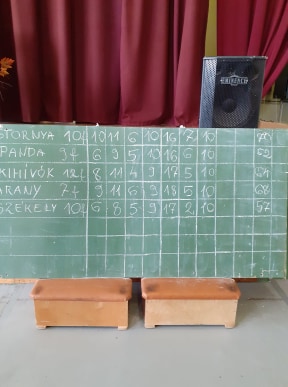 STORNYA 10f 10 11 6 10 16 7 10
PANDA 9f 6 9 5 10 16 6 10 62
KIHÍVÓK 12f 8 11 4 9 17 5 10 64
ARANY 7f 9 11 6 9 18 5 10 68
SZÉKELY 10f 6 8 5 9 17 2 10 57